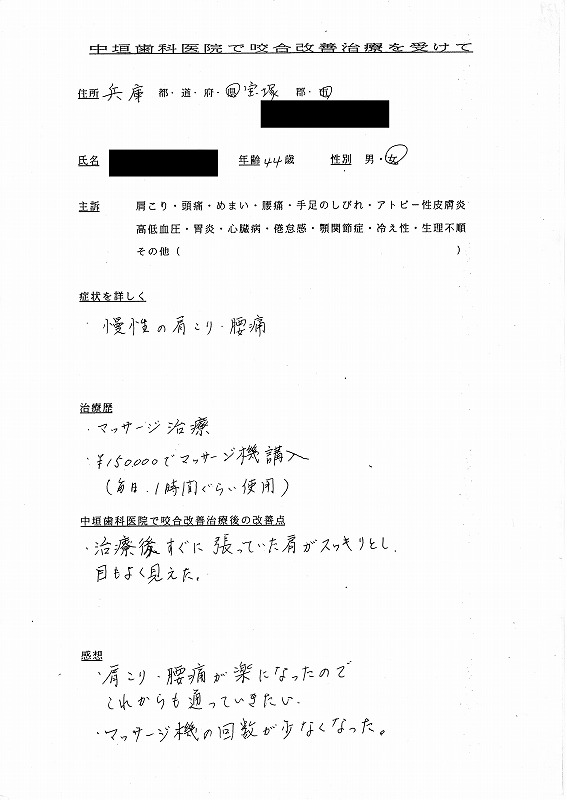 中垣歯科医院で咬合改善治療を受けて
住所 兵庫 都・道・府・県 宝塚 郡・市
氏名 年齢 44歳 性別 男・女
主訴 肩こり・頭痛・めまい・腰痛・手足のしびれ・アトピー性皮膚炎
高低血圧・胃炎・心臓病・倦怠感・顎関節症・冷え性・生理不順
その他( )
症状を詳しく
・慢性の肩こり・腰痛
治療歴
・マッサージ治療
・¥150000でマッサージ機講入
(毎日、1時間ぐらい使用)
中垣歯科医院で咬合改善治療後の改善点
・治療後すぐに張っていた肩がスッキリとし、
目もよく見えた。
感想
・肩こり・腰痛が楽になったので
これからも通っていきたい。
・マッサージ機の回数が少なくなった。